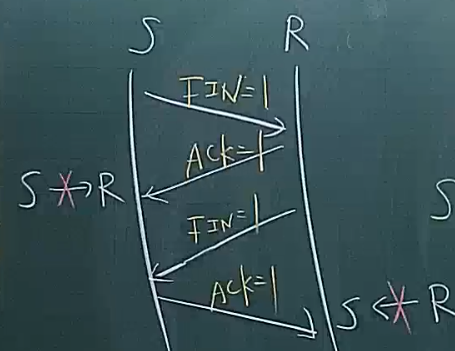 S R
FIN=1
ACK=1
S→R
FIN=1
ACK=1
S←R
S